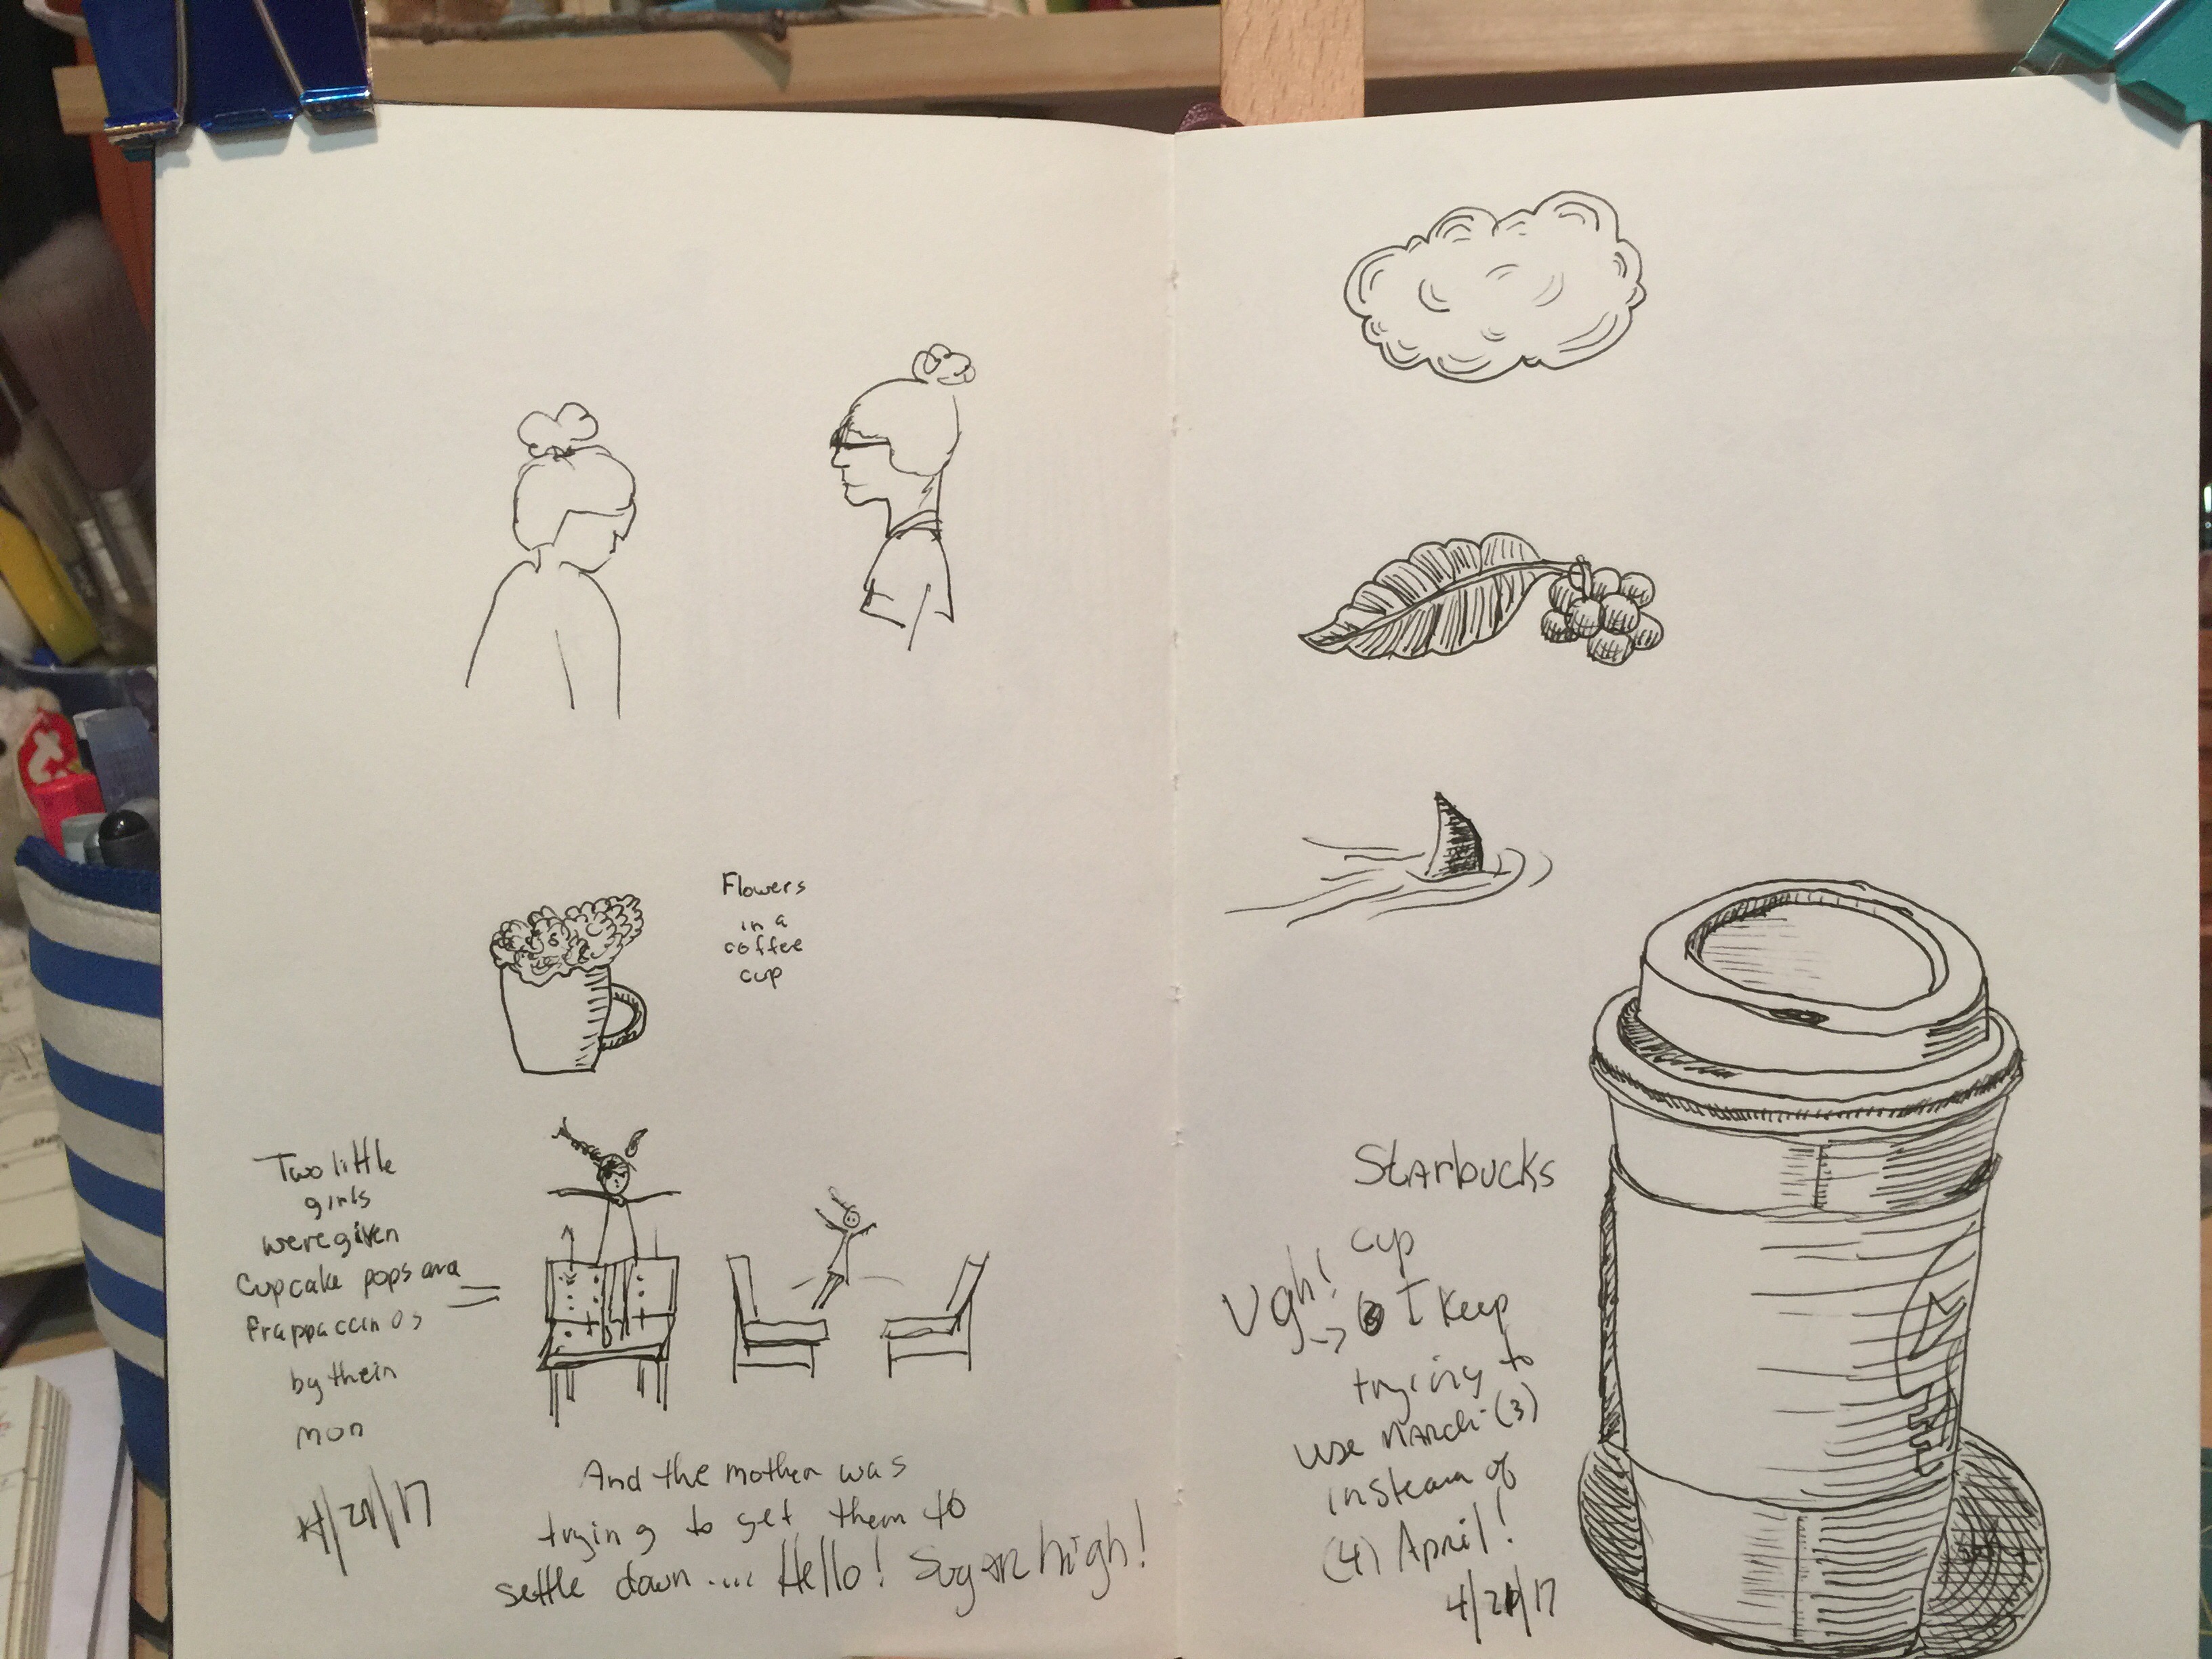 Flowers
in a
coffee
cup
Two little
girls
were given
Cupcake pops and
frappaccinos
by their
mom
4/21/17
And the mother was
trying to get them to
settle down.... Hello! Sugar high!
Starbucks
cup
Ugh! -> I keep
trying to
use March (3)
instead of
(4) April!
4/21/17